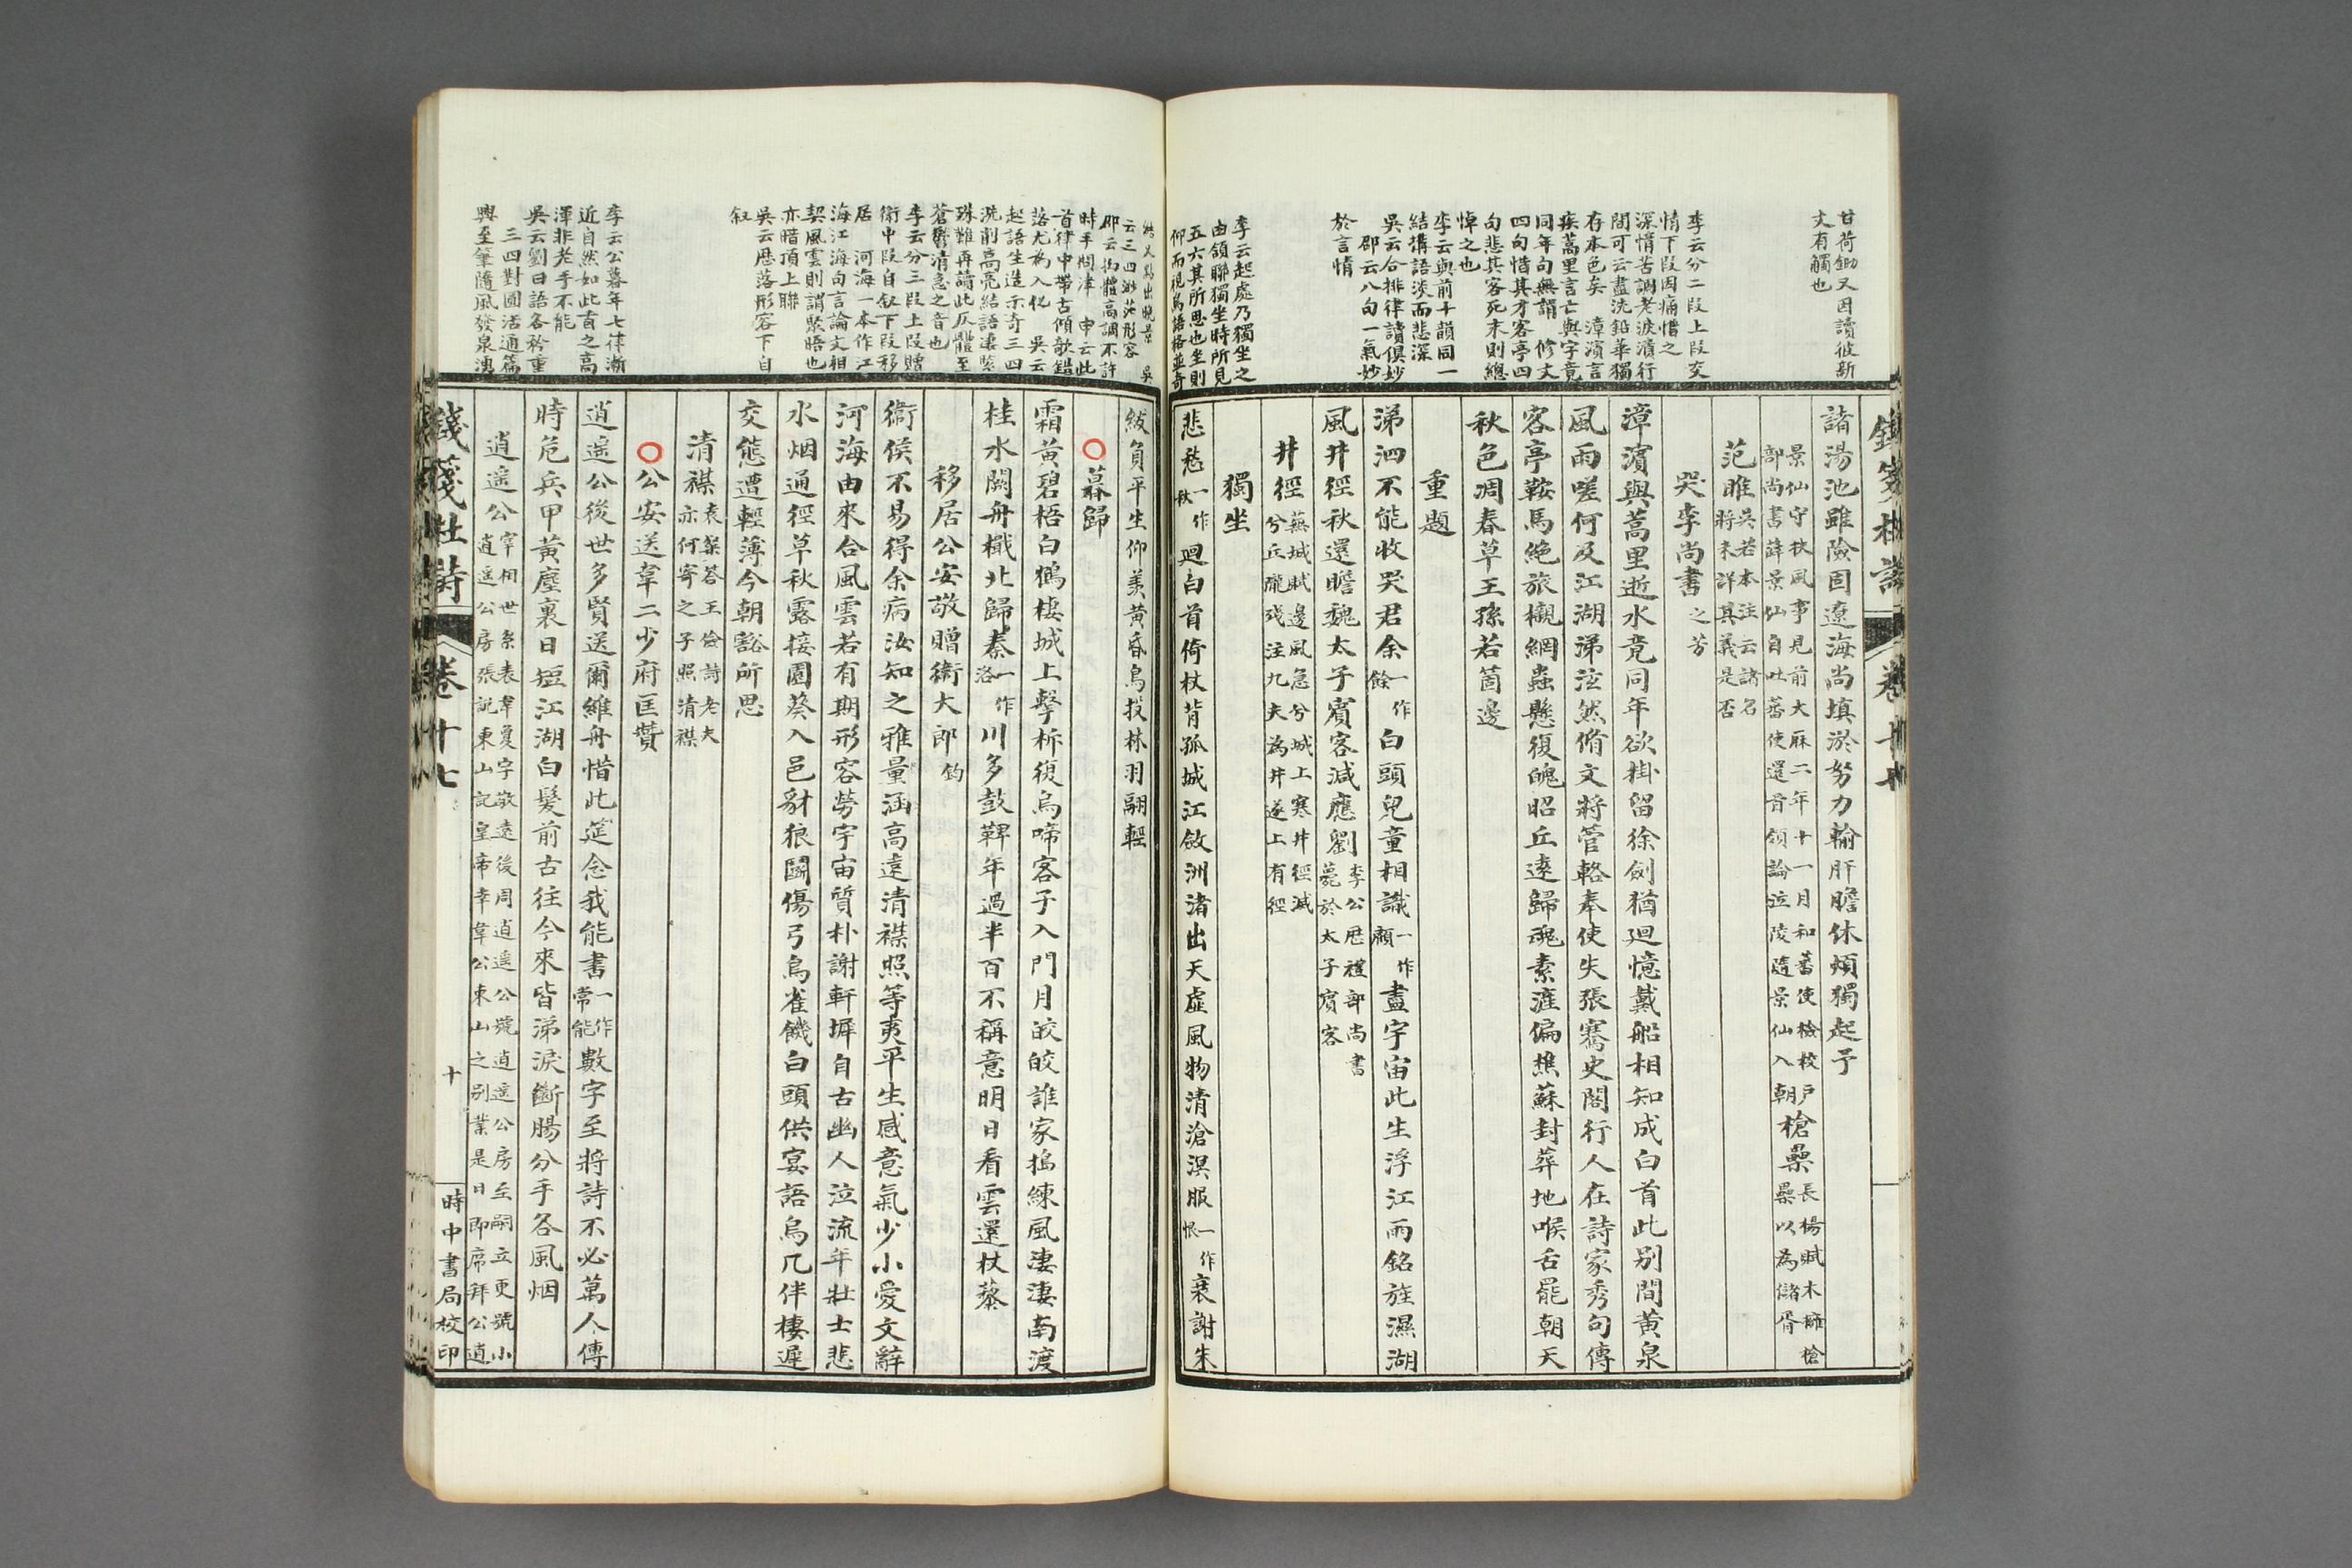 甘荷鋤又因讀彼新
文有觸也
李云分二段上段交
情下段因痛惜之
深情苦調老淚濆行
間可云盡洗鉛華獨
存本色矣 漳濱言
疾蒿里言亡與字竟
同年句無謂 修文
四句惜其才客亭四
句悲其客死末則總
悼之也
李云與前十韻同一
結構語淡而悲深
吳云合排律讀俱妙
邵云八句一氣妙
於言情
李云起處乃獨坐之
由頷聯獨坐時所見
五六其所思也坐則
仰而視為語格並奇
諸湯池雖險固遼海尚填淤努力輸肝膽休煩獨起予
景仙守扶風事見前大厤二年十一月和蕃使檢校戶
部尚書薛景仙自吐蕃使還首領論泣陵隨景仙入朝
槍纍
長楊賦木擁槍
纍以為儲胥
范雎
吳若本注云諸名
將未詳其義是否
哭李尚書之芳
漳濱與蒿里逝水竟同年欲掛留徐劍猶迴憶戴船相知成白首此別間黃泉
風雨嗟何及江湖涕泫然脩文將管輅奉使失張騫史閣行人在詩家秀句傳
客亭鞍馬絕旅櫬網蟲懸復魄昭丘遠歸魂素滻偏樵蘇封葬地喉舌罷朝天
秋色凋春草王孫若箇邊
重題
涕泗不能收哭君余一作餘白頭兒童相識一作顧盡宇宙此生浮江雨銘旌濕湖
風井徑秋還瞻魏太子賓客減應劉
李公厯禮部尚書
薨於太子賓客
井徑
蕪城賦邊風急兮城上寒井徑滅
兮丘隴殘注九夫為井遂上有徑
獨坐
悲愁一作秋迴白首倚杖背孤城江斂洲渚出天虛風物清滄溟服一作恨衰謝朱
云三四渺茫形容 吳
邵云拗體高調不許
時手問津 申云此
首律中帶古傾欹錯
落尤為入化 吳云
起語生造示奇三四
洗削高亮結語淒緊
殊難再讀此仄體至
蒼鬱清急之音也
李云分三段上段贈
衛中段自叙下段移
居 河海一本作江
海江海句言論文相
契風雲則謂聚晤也
亦暗頂上聯
吳云厯落形容下自
叙
李云公暮年七律漸
近自然如此首之高
渾非老手不能
吳云劉曰語各矜重
三四對圓活通篇
興至筆隨風發泉湧
紱負平生仰羨黃昏鳥投林羽翮輕
暮歸
霜黃碧梧白鶴棲城上擊柝復烏啼客子入門月皎皎誰家搗練風淒淒南渡
桂水闕舟檝北歸秦一作洛川多鼓鞞年過半百不稱意明日看雲還杖藜
移居公安敬贈衛大郎鈞
衛侯不易得余病汝知之雅量涵高遠清襟照等夷平生感意氣少小愛文辭
河海由來合風雲若有期形容勞宇宙質朴謝軒墀自古幽人泣流年壯士悲
水烟通徑草秋露接園葵入邑豺狼鬪傷弓鳥雀饑白頭供宴語烏几伴棲遲
交態遭輕薄今朝豁所思
清襟
袁粲答王儉詩老夫
亦何寄之子照清襟
公安送韋二少府匡贊
逍遥公後世多賢送爾維舟惜此筵念我能書一作常能數字至將詩不必萬人傳
時危兵甲黃塵裏日短江湖白髮前古往今來皆涕淚斷腸分手各風烟
逍遥公
宰相世系表韋夐字敬遠後周逍遥公號逍遥公房至嗣立更號小
逍遥公房張說東山記皇帝幸韋公東山之別業是日即席拜公逍
錢箋杜詩 卷十七 十 時中書局校印